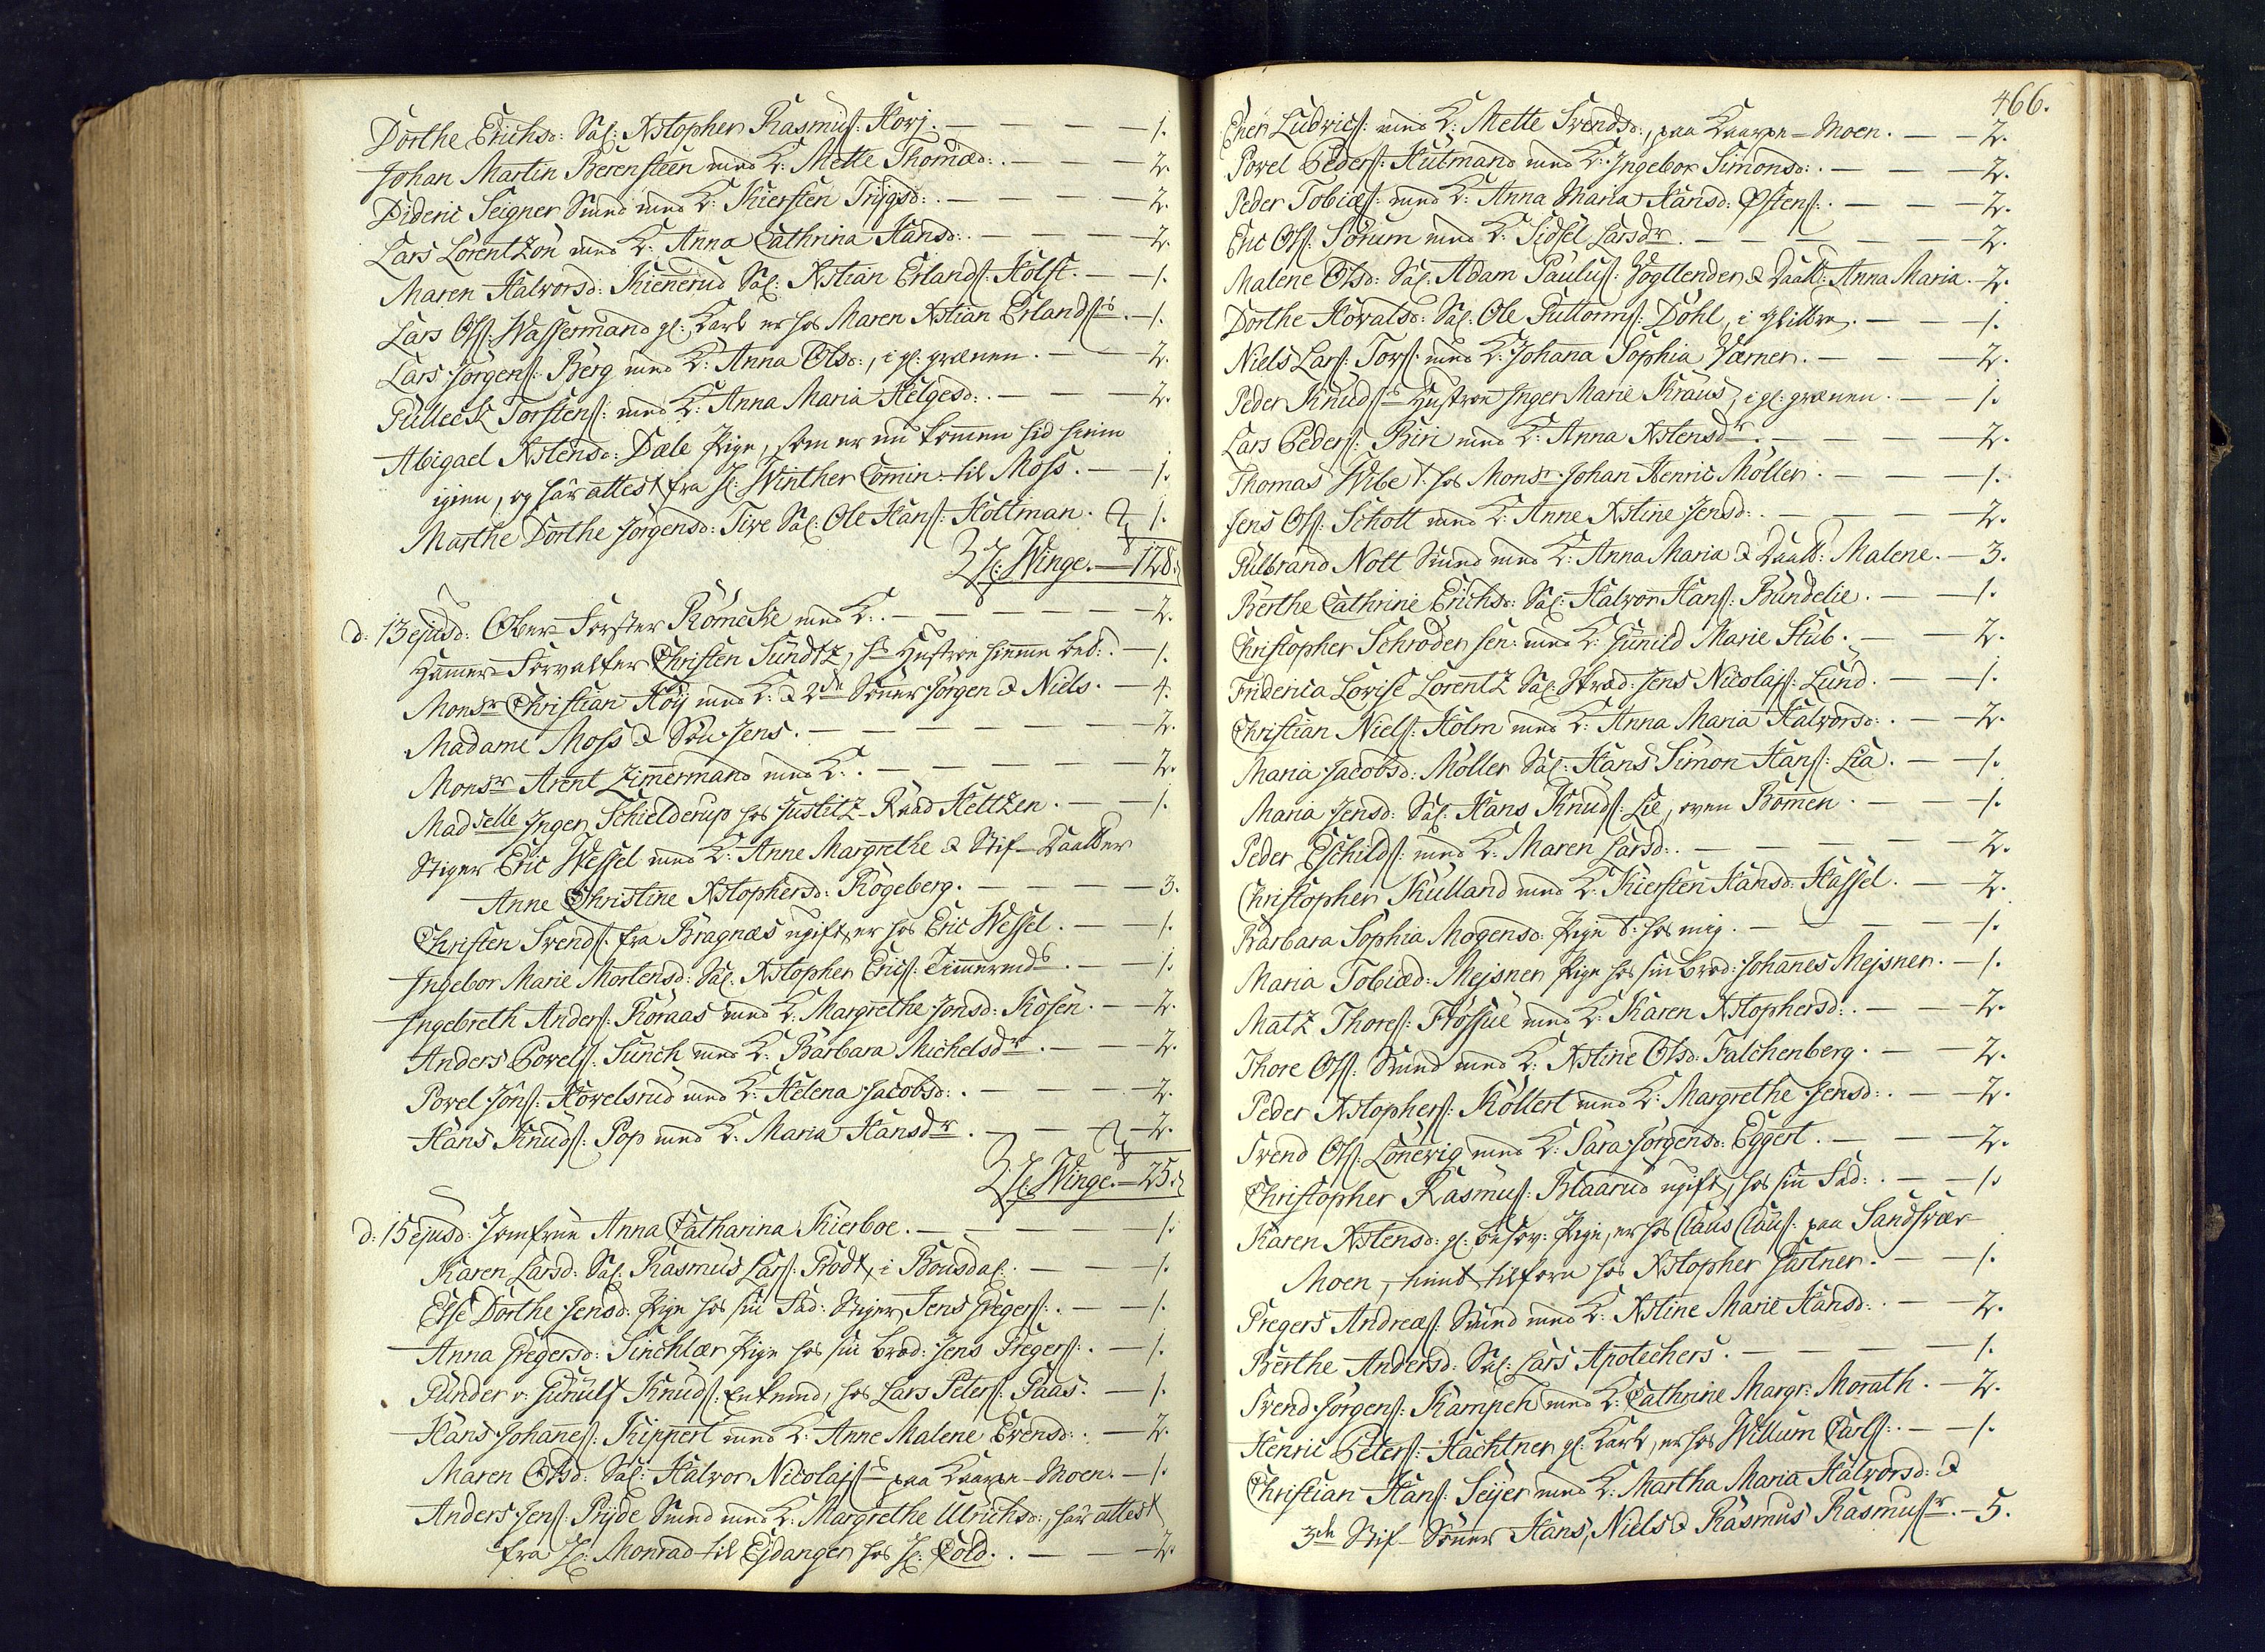 Dorthe Erichsd: Sal: Xstopher Rasmusſ: Korj. — 1.
Johan Martin Berensteen med K: Mette Thomæd: — 2.
Dideric Seigner Smed med K: Kiersten Trygsd: — 2.
Lars Lorentzon med K: Anna Cathrina Hansd: — 2.
Maren Halvorsd: Kienerud Sal: Xstian Erlandſ: Holst. — 1.
Lars Olſ: Wassermand gl: Karl er hos Maren Xstian Erlandſ — 1.
Lars Jörgenſ: Berg med K: Anna Olsd:, i gl: grænen. — 2.
Gulleck Torstenſ: med K: Anna Maria Helgesd: — 2.
Abigael Xstensd: Dæle Pige, som er nu kommen hid hiem
igien, og har attest fra H: Winther Comin: til Moss. — 1.
Marthe Dorthe Jörgensd: Tire Sal: Ole Hanſ: Holtman. 1.
H: Winge. — 128.
d: 13 ejusd: Ober-Forster Römcke med K: — 2.
Hammer-Forvalter Christen Sundtz, hs Hustroe hiemme bed: — 1.
Monsr Christian Höy med K: & 2de Sönner Jörgen & Niels. — 4.
Madame Moss & Sön Jens. — 2.
Monsr Arent Zimmermand med K: — 2.
Madselle Inger Schielderup hos Justitz-Raad Heltzen. — 1.
Stiger Eric Wessel med K: Anne Margrethe & Stif-Daatter
Anne Christine Xstophersd: Rogeberg. — 3.
Christen Svendſ: fra Bragnæs ugift, er hos Eric Wessel. — 1.
Ingebor Marie Mortensd: Sal: Xstopher Ericſ: Timmermds. — 1.
Ingebreth Anderſ: Röraas med K: Margrethe Jonsd: Kosen. — 2.
Anders Povelſ: Sunch med K: Barbara Michelsdr. — 2.
Povel Jönſ: Hovelsrud med K: Helena Jacobsd: — 2.
Hans Knudſ: Pop med K: Maria Hansdr. — 2.
H: Winge. — 25.
d: 15 ejusd: Jomfrue Anna Catharina Kierboe. — 1.
Karen Larsd: Sal: Rasmus Larſ: Prodt, i Bousdal. — 1.
Else Dorthe Jensd: Pige hos sin Fad: Stiger Jens Gregerſ: — 1.
Anna Gregersd: Sinchlær Pige hos sin Brod: Jens Gregerſ: — 1.
Gunder v: Gunult Knudſ: Enkemd, hos Lars Peterſ: Paas. — 1.
Hans Johanneſ: Kippert med K: Anne Malene Evensd: — 2.
Maren Olsd: Sal: Halvor Nicolajſ paa Kaarpe-Moen. — 1.
Anders Jenſ: Pryde Smed med K: Margrethe Ulrichsd:, har attest
fra H: Monrad til Ejdanger hos H: Cold. — 2.
466.
Ener Ludvicſ: med K: Mette Svendsd:, paa Kaarpe-Moen. — 2.
Povel Pederſ: Hutmand med K: Ingebor Simonsd: — 2.
Peder Tobiæſ: med K: Anna Maria Hansd: Østenſ: — 2.
Eric Olſ: Sorum med K: Sidsel Larsdr. — 2.
Malene Olsd: Sal: Adam Paulusſ: Vogtlender & Daatt: Anna Maria. — 2.
Dorthe Hovalsd: Sal: Ole Guttormſ: Dohl, i — 1.
Niels Larſ: Torſ: med K: Johanna Sophia Værner. — 2.
Peder Knudſ Hustroe Inger Marie Kraus, i gl: grænen. — 1.
Lars Pederſ: Biri med K: Anna Xstensdr. — 2.
Thomas Wibe t: hos Monsr Johan Henric Möller. — 1.
Jens Olſ: Schott med K: Anne Xstine Jensd: — 2.
Gulbrand Nott Smed med K: Anna Maria & Daatt: Malene. — 3.
Berthe Cathrine Erichsd: Sal: Halvor Hanſ: Bundelie. — 1.
Christopher Schröder sen: med K: Gunild Marie Stub. — 2.
Friderica Lovise Lorentz Sal: Jens Nicolajſ: Lund. — 1.
Christian Nielſ: Holm med K: Anna Maria Halvorsd: — 2.
Maria Jacobsd: Möller Sal: Hans Simon Hanſ: Lia. — 1.
Maria Jensd: Sal: Hans Knudſ: Lie, oven Bommen. — 1.
Peder Eschildſ: med K: Maren Larsd: — 2.
Christopher Kulland med K: Kiersten Hansd: Hassel. — 2.
Barbara Sophia Mogensd: Pige t: hos mig. — 1.
Maria Tobiæd: Mejsner Pige hos sin Brod: Johannes Mejsner. — 1.
Matz Thoreſ: Flossue med K: Karen Xstophersd: — 2.
Thore Olſ: Smed med K: Xstine Olsd: Falchenberg. — 2.
Peder Xstopherſ: Költert med K: Margrethe Jensd: — 2.
Svend Olſ: Lönevig med K: Sara Jörgensd: Eggert. — 2.
Christopher Rasmusſ: Blaarud ugift, hos sin Fad: — 1.
Karen Xstensd: gl: besov: Pige, er hos Claus Clausſ: paa Sandsvær-
Moen, tient tilforn hos Xstopher Gartner. — 1.
Gregers Andreæſ: Smed med K: Xstine Marie Hansd: — 2.
Berthe Andersd: Sal: Lars Apotechers. — 1.
Svend Jörgenſ: Kampeh med K: Cathrine Margr: Morath. — 2.
Henric Peterſ: Hachtner gl: Karl, er hos Willum Carlſ: — 1.
Christian Hanſ: Seijer med K: Martha Maria Halvorsd: &
3de Stif-Sönner Hans, Niels & Rasmus Rasmusſr. — 5.